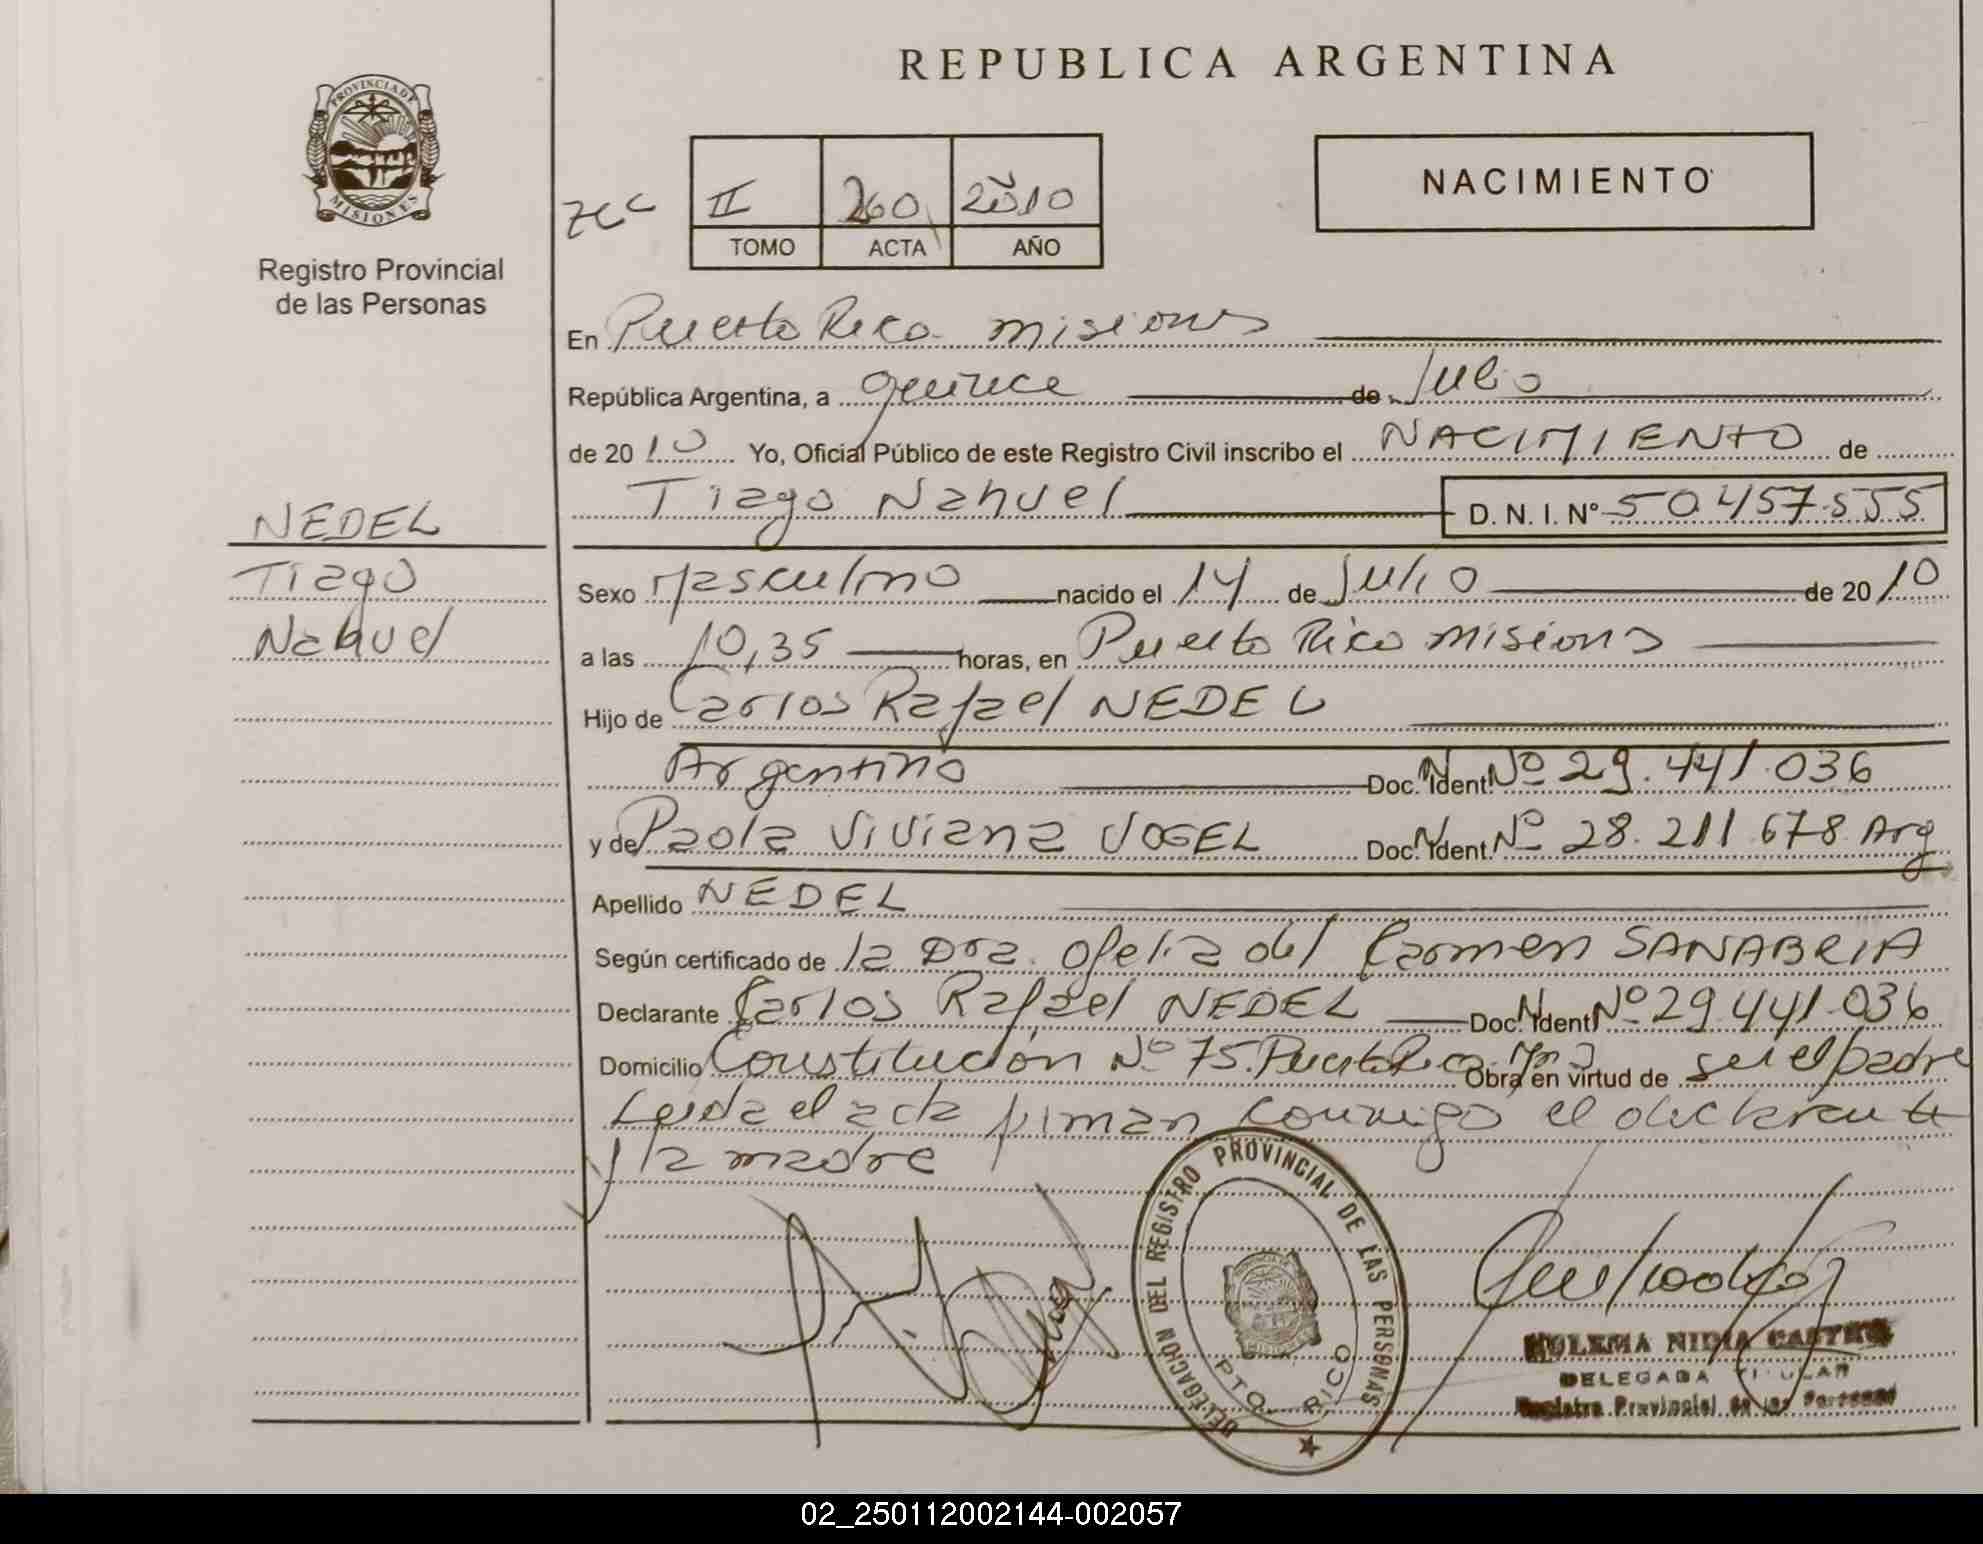 REPUBLICA ARGENTINA
PROVINCIA DE
MISIONES
Registro Provincial
de las Personas
II 260 2010
TOMO ACTA AÑO
NACIMIENTO
En Puerto Rico misiones
República Argentina, a quince de Julio
de 2010 Yo, Oficial Público de este Registro Civil inscribo el NACIMIENTO de
Tiago Nahuel D. N. I. Nº 50.457.555
NEDEL
Tiago
Nahuel
Sexo Masculino nacido el 14 de Julio de 2010
a las 10,35 horas, en Puerto Rico misiones
Hijo de Carlos Rafael NEDEL
Argentino Doc. Ident. Nº 29.441.036
y de Paola Viviana VOGEL Doc. Ident. Nº 28.211.678 Arg
Apellido NEDEL
Según certificado de la Dra. Ofelia del Carmen SANABRIA
Declarante Carlos Rafael NEDEL Doc. Ident Nº 29.441.036
Domicilio Constitución Nº 75. Puerto Rico Mnes Obra en virtud de ser el padre
Leida el acta firman conmigo el declarante
y la madre
DELEGACION DEL REGISTRO PROVINCIAL DE LAS PERSONAS
PTO. RICO
NIDIA
DELEGADA TITULAR
Registro Provincial de las Personas
02_250112002144-002057